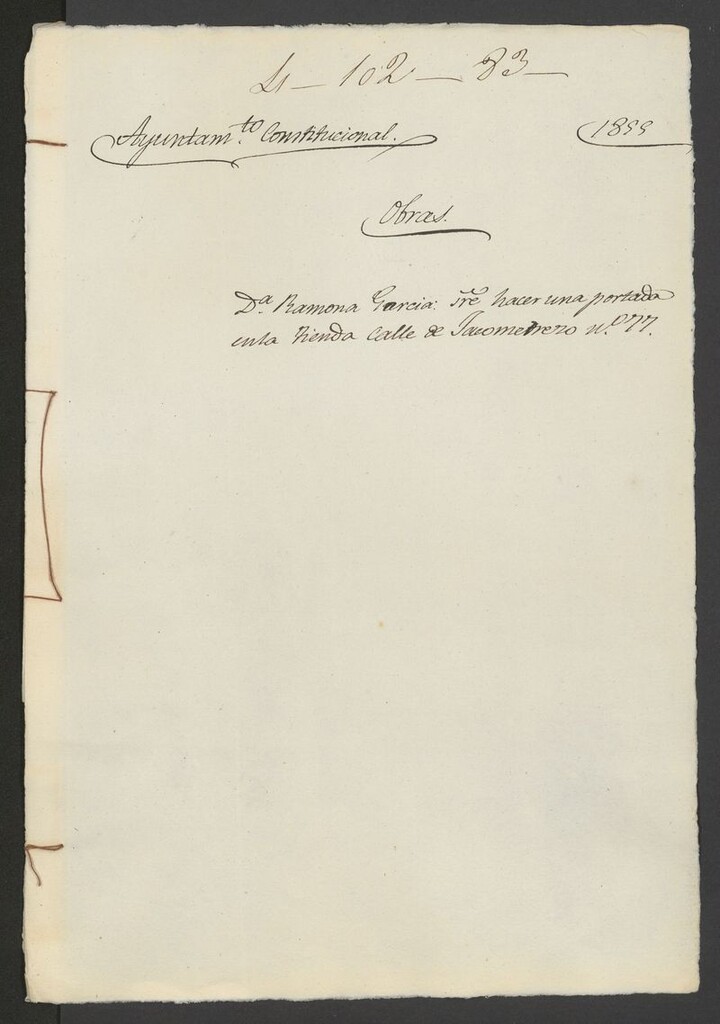 4 - 102 - 83 -
Ayuntam.to Constitucional. 1855
Obras.
D.a Ramona Garcia: sre hacer una portada
en la tienda calle de Jacometrezo n.o 77.